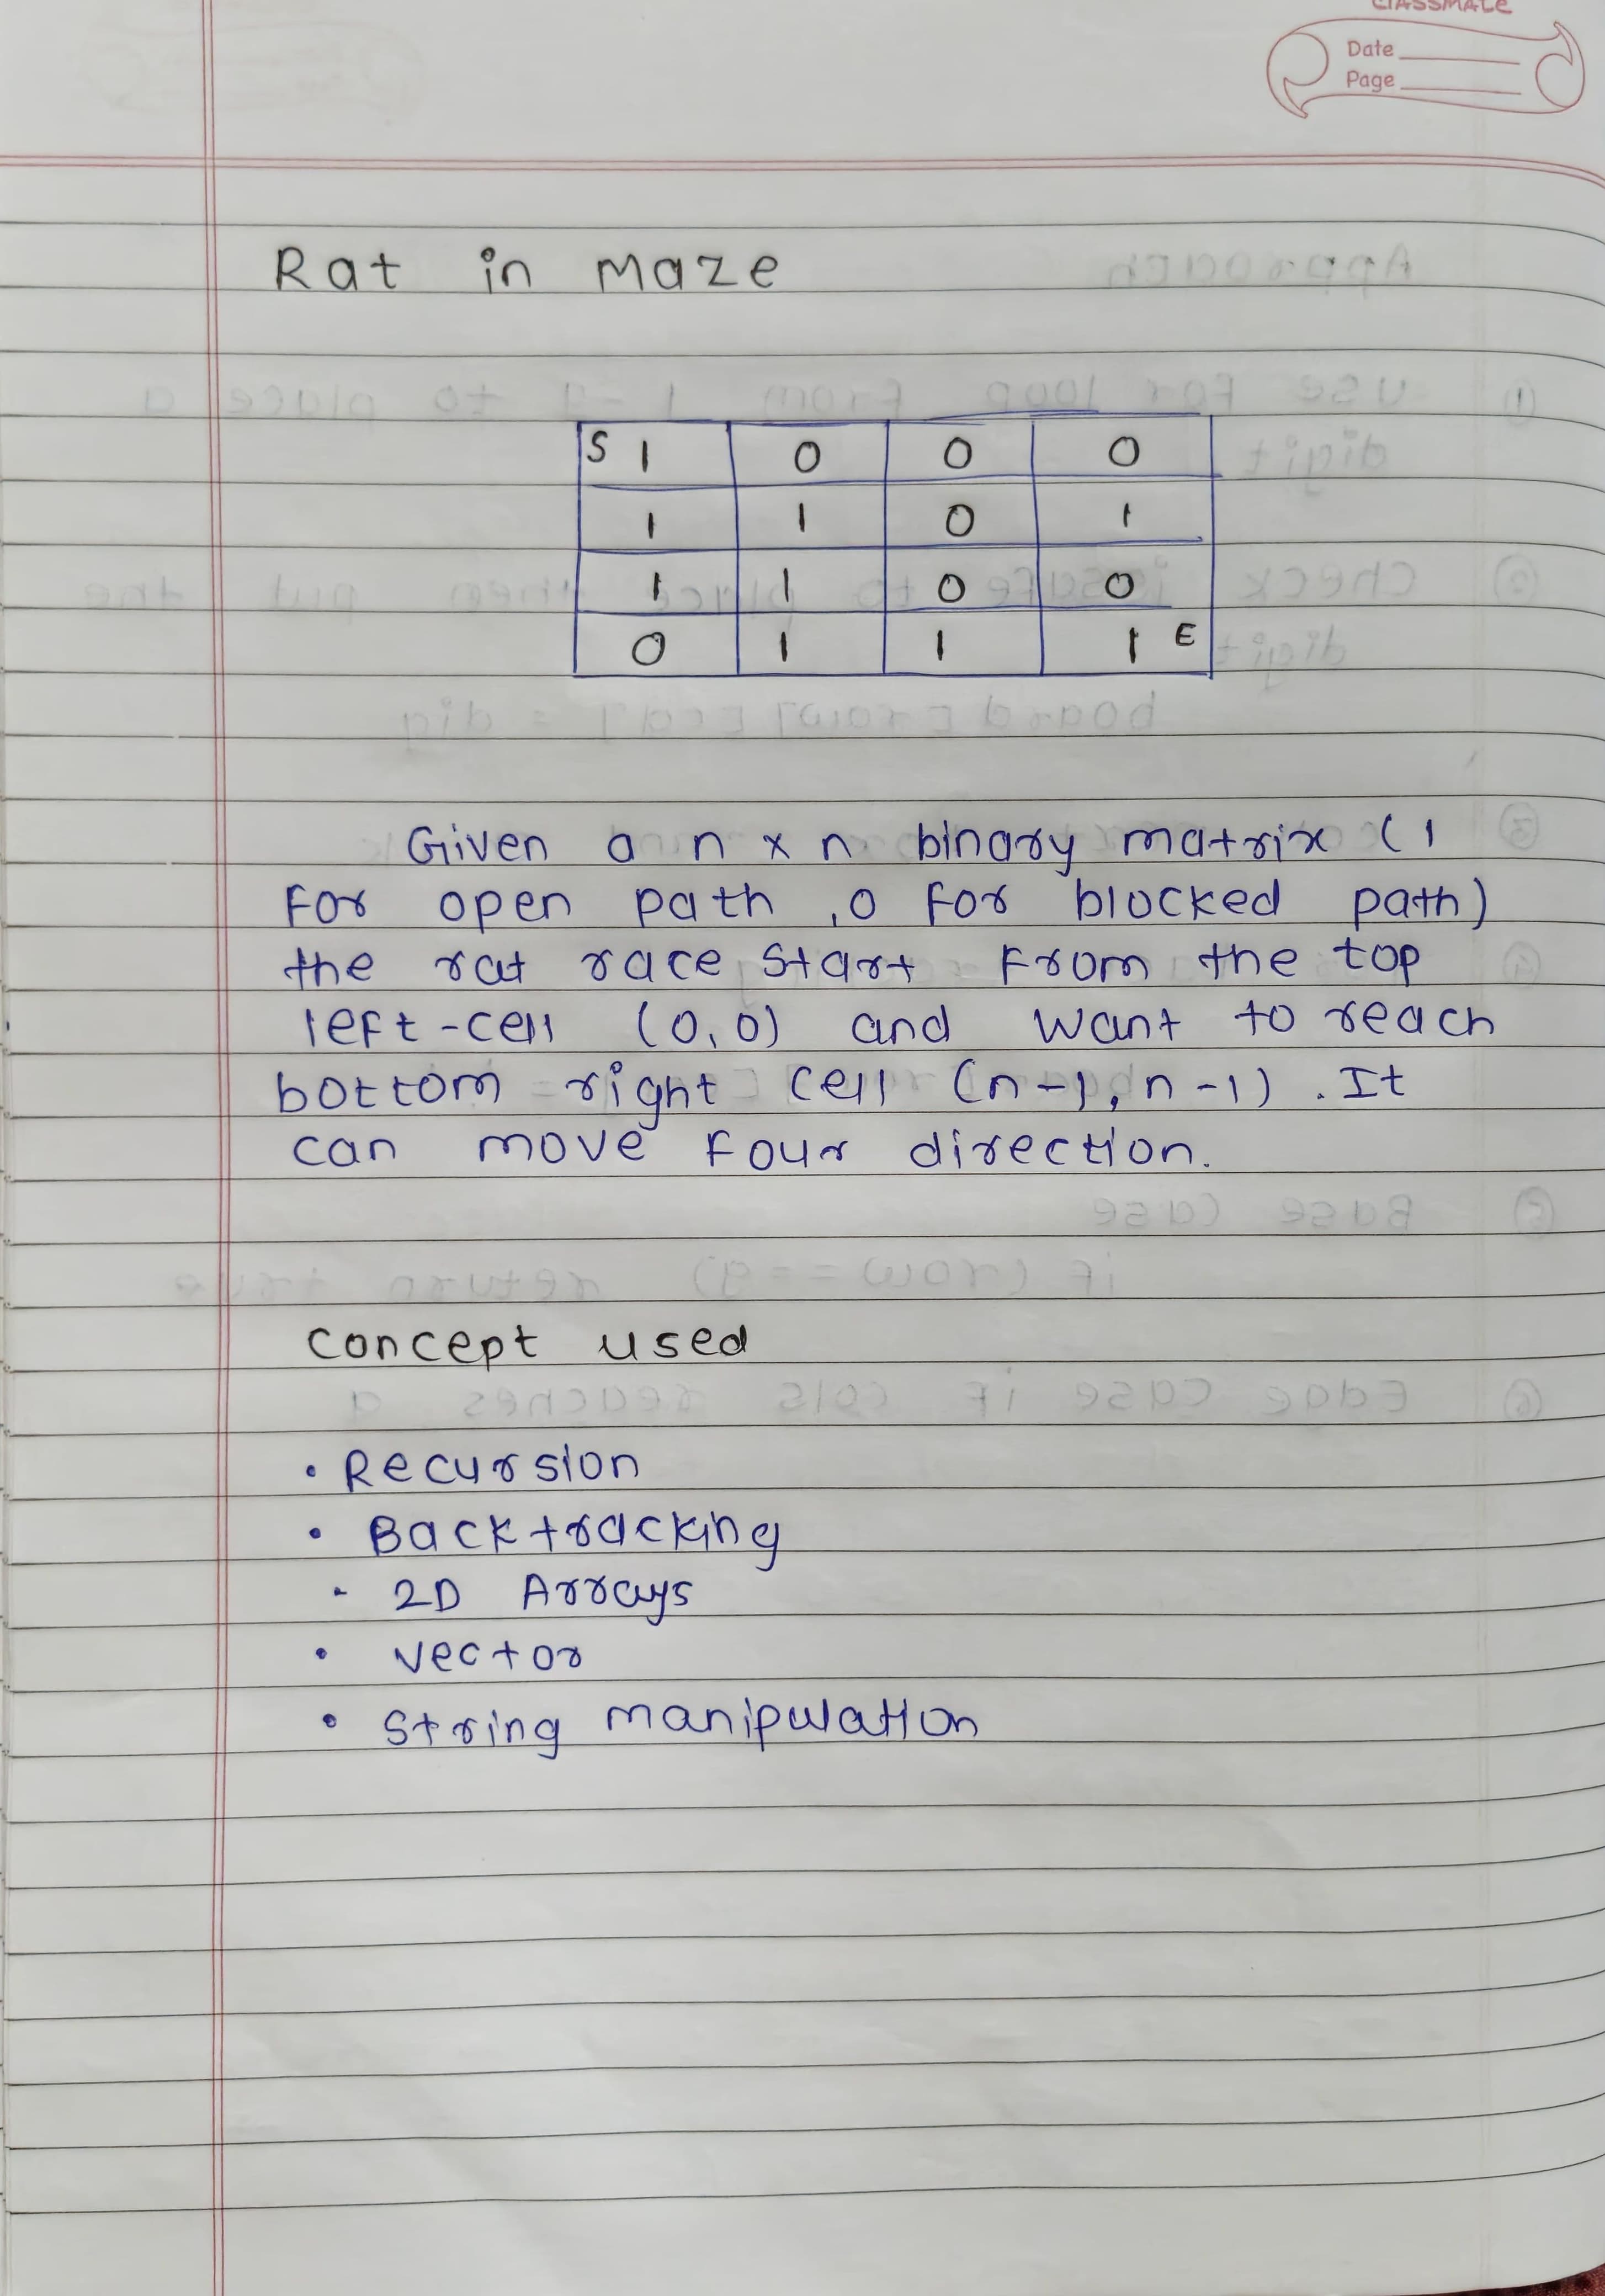 classmate
Date
Page
Rat in maze
S 1 0 0 0
1 1 0 1
1 1 0 0
0 1 1 1 E
Given a n x n binary matrix ( 1
for open path , 0 for blocked path )
the rat race start from the top
left-cell (0,0) and want to reach
bottom right cell (n-1, n-1) . It
can move four direction.
concept used
• Recursion
• Backtracking
• 2D Arrays
• vector
• string manipulation